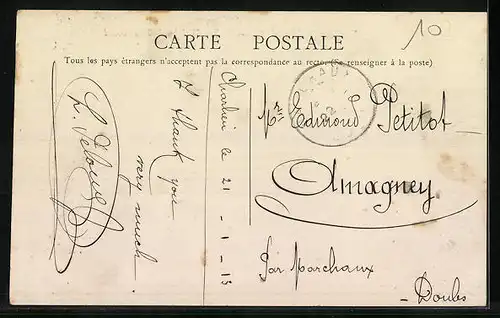 CARTE POSTALE
Tous les pays étrangers n'acceptent pas la correspondance au recto (Se renseigner à la poste)
10
Charlieu le 21-1-15
I thank you
very much.
Mr Edmond Petitot
Amagney
par Marchaux
- Doubs